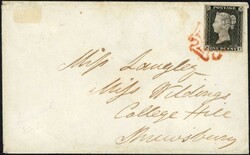 POSTAGE
ONE PENNY
Miss Langley
Miss Wildings
College Hill
Shrewsbury